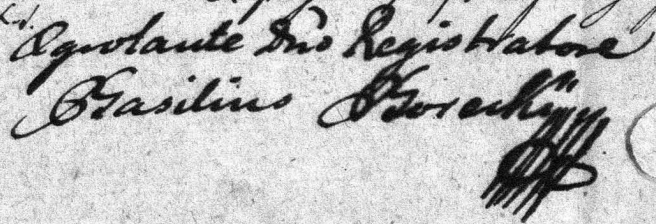 Egrotante Dno Registratore
Basilius Borecky